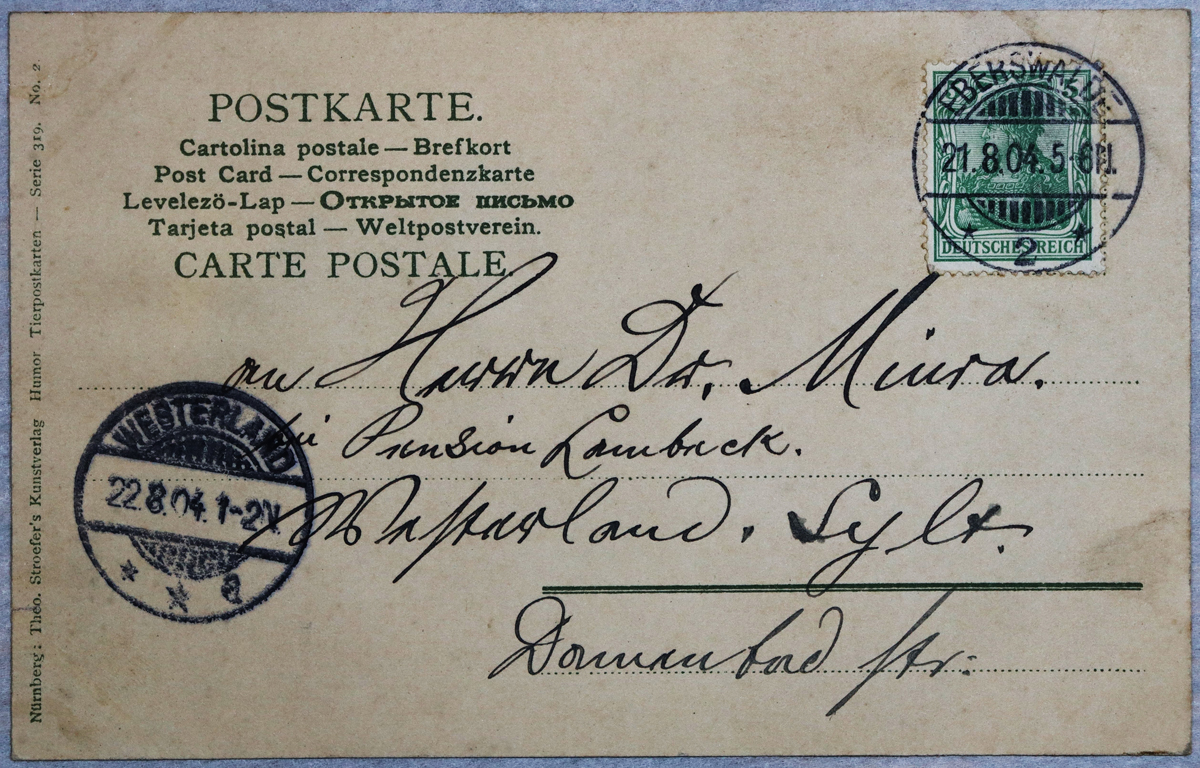 POSTKARTE.
Cartolina postale — Brefkort
Post Card — Correspondenzkarte
Levelezö-Lap — Открытое письмо
Tarjeta postal — Weltpostverein.
CARTE POSTALE.
EBERSWALDE
21.8.04.5-6N.
* 2 *
DEUTSCHES REICH
an Herrn Dr. Miura.
bei Pension Lambeck.
Westerland. Sylt.
Damenbad str.
WESTERLAND
22.8.04.1-2N.
* * a
Nürnberg: Theo. Stroefer's Kunstverlag Humor Tierpostkarten — Serie 319. No. 2